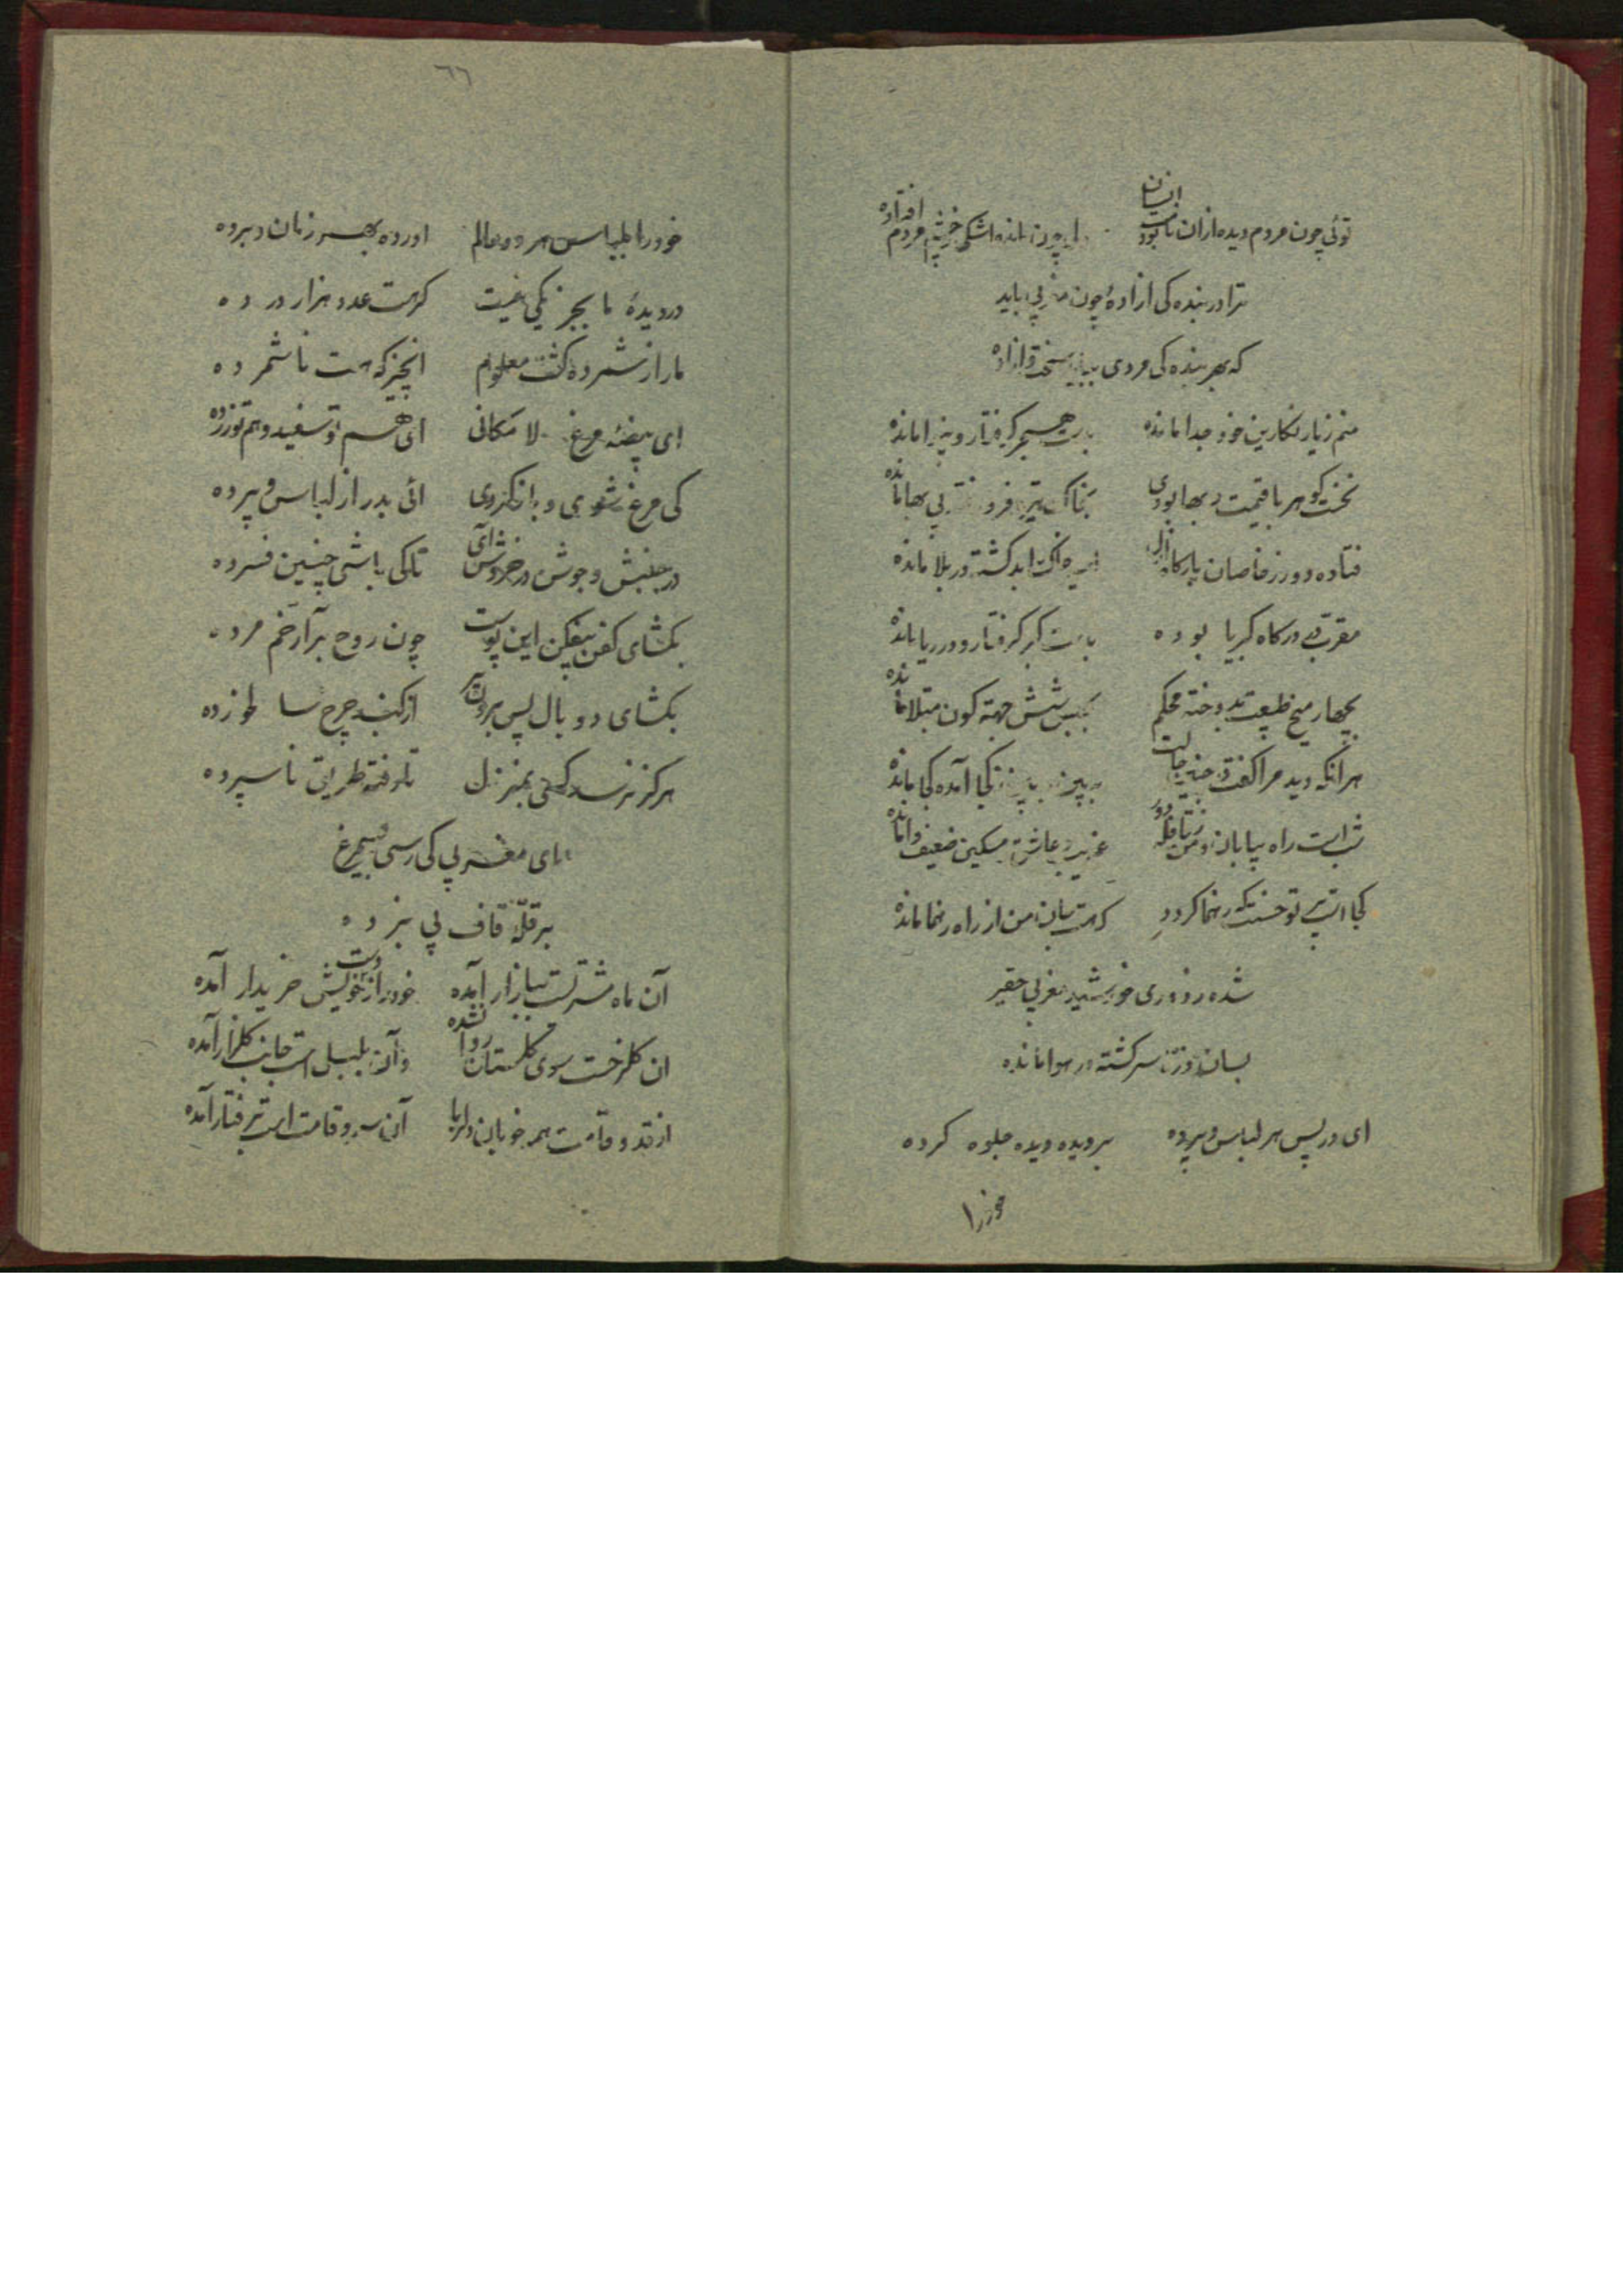 توئی چون مردم دیده ازان انسان بود نامت
چون اشکی چشم مردم افتاده
ترا در بنده کی ازاده چون مغربی باید
که بهر بنده کی مردی بباید سخت ازاده
منم زیار نکارین خود جدا مانده
بدست هجر کرفتار و بینوا مانده
نخست کوهر با قیمت و بها بودی
بخاک تیره فرو رفته بی بها مانده
فتاده دور ز خاصان بارکاه ازل
اسیر خاک ابد کشته در بلا مانده
مقرب در کاه کبریا بوده
بدست کبر کرفتار و در ریا مانده
بچهار میخ طبیعت بدوخته محکم
بحبس شش جهة کون مبتلا مانده
هر انکه دید مرا کفت در چنین حالت
ببین ببین ز کجا آمده کجا مانده
شب است راه بیابان و من ز قافله دور
غریب و عاشق و مسکین ضعیف وا مانده
کجا است پرتو حسنت که رهنما کردد
که جان من از راه رهنما مانده
شده ز دوری خورشید مغربی حقیر
بسان ذره سرکشته در هوا مانده
ای در پس هر لباس و پرده
بر دیده دیده جلوه کرده
خود را
٦٦
خود را بلباس هر دو عالم
اورده بهر زمان و برده
در دیدهٔ ما بجز یکی نیست
کرهست عدد هزار ور ده
مارا ز شمرده کشت معلوم
انچیز که هست ناشمرده
ای بیضهٔ مرغ لا مکانی
ای هم تو سفید و هم تو زرده
کی مرغ شوی و باز کردی
ائی بدر از لباس و پرده
در جنبش و جوش و در خروش آی
تا کی باشی چنین فسرده
بکشای کفن بیفکن این پوست
چون روح برآر خم مرده
بکشای دو بال پس برون پر
از کنبد چرخ سا لخورده
هرکز نرسد کسی بمنزل
نارفته طریق ناسپرده
ای مغربی کی رسی بسیمرغ
بر قلهٔ قاف پی نبرده
آن ماه مشتریست ببازار آمده
خود را ز دست خویش خریدار آمده
ان کلرخست سوی کلستان روا نشده
وآن بلبلی است جانب کلزار آمده
از قد و قامت همه خوبان دلربا
آن سرو قامت است برفتار آمده